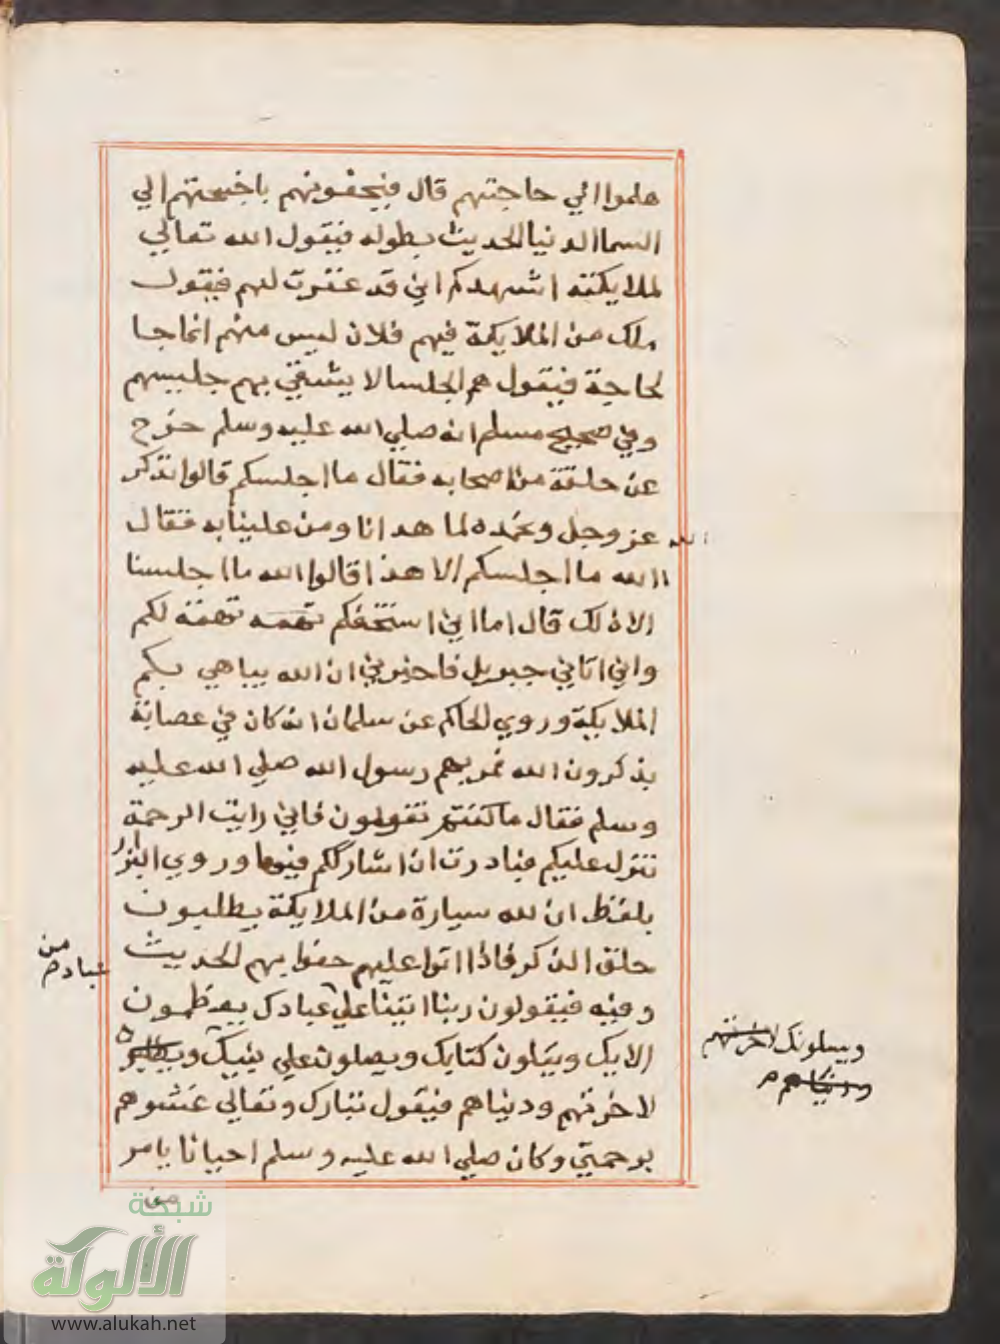 هلموا الي حاجتهم قال فيحفونهم باجنحتهم الي
السما الدنيا الحديث بطوله فيقول الله تعالي
لملايكته اشهدكم اني قد غفرت لهم فيقول
ملك من الملايكة فيهم فلان ليس منهم انما جا
لحاجة فيقول هم الجلسا لا يشقي بهم جليسهم
وفي صحيح مسلم انه صلي الله عليه وسلم خرج
عن حلقة من اصحابه فقال ما اجلسكم قالوا نذكر
الله عز وجل ونحمده لما هدانا ومن علينا به فقال
االله ما اجلسكم الا هذا قالوا الله ما اجلسنا
الا ذلك قال اما اني استحلفكم تهمة لكم
واني اتاني جبريل فاخبرني ان الله يباهي بكم
الملايكة وروي الحاكم عن سلمان انه كان في عصابة
يذكرون الله فمر بهم رسول الله صلي الله عليه
وسلم فقال ما كنتم تقولون فاني رايت الرحمة
تنزل عليكم فبادرت ان اشارككم فيها وروي البزار
بلفظ ان لله سيارة من الملايكة يطلبون
حلق الذكر فاذا اتوا عليهم حفوا بهم الحديث
وفيه فيقولون ربنا اتينا علي عباد من عبادك يعظمون
الايك ويتلون كتابك ويصلون علي نبيك
ويسلونك
لاخرتهم ودنياهم فيقول تبارك وتعالي غشوهم
برحمتي وكان صلي الله عليه وسلم احيانا يامر
من
شبكة
الألوكة
www.alukah.net